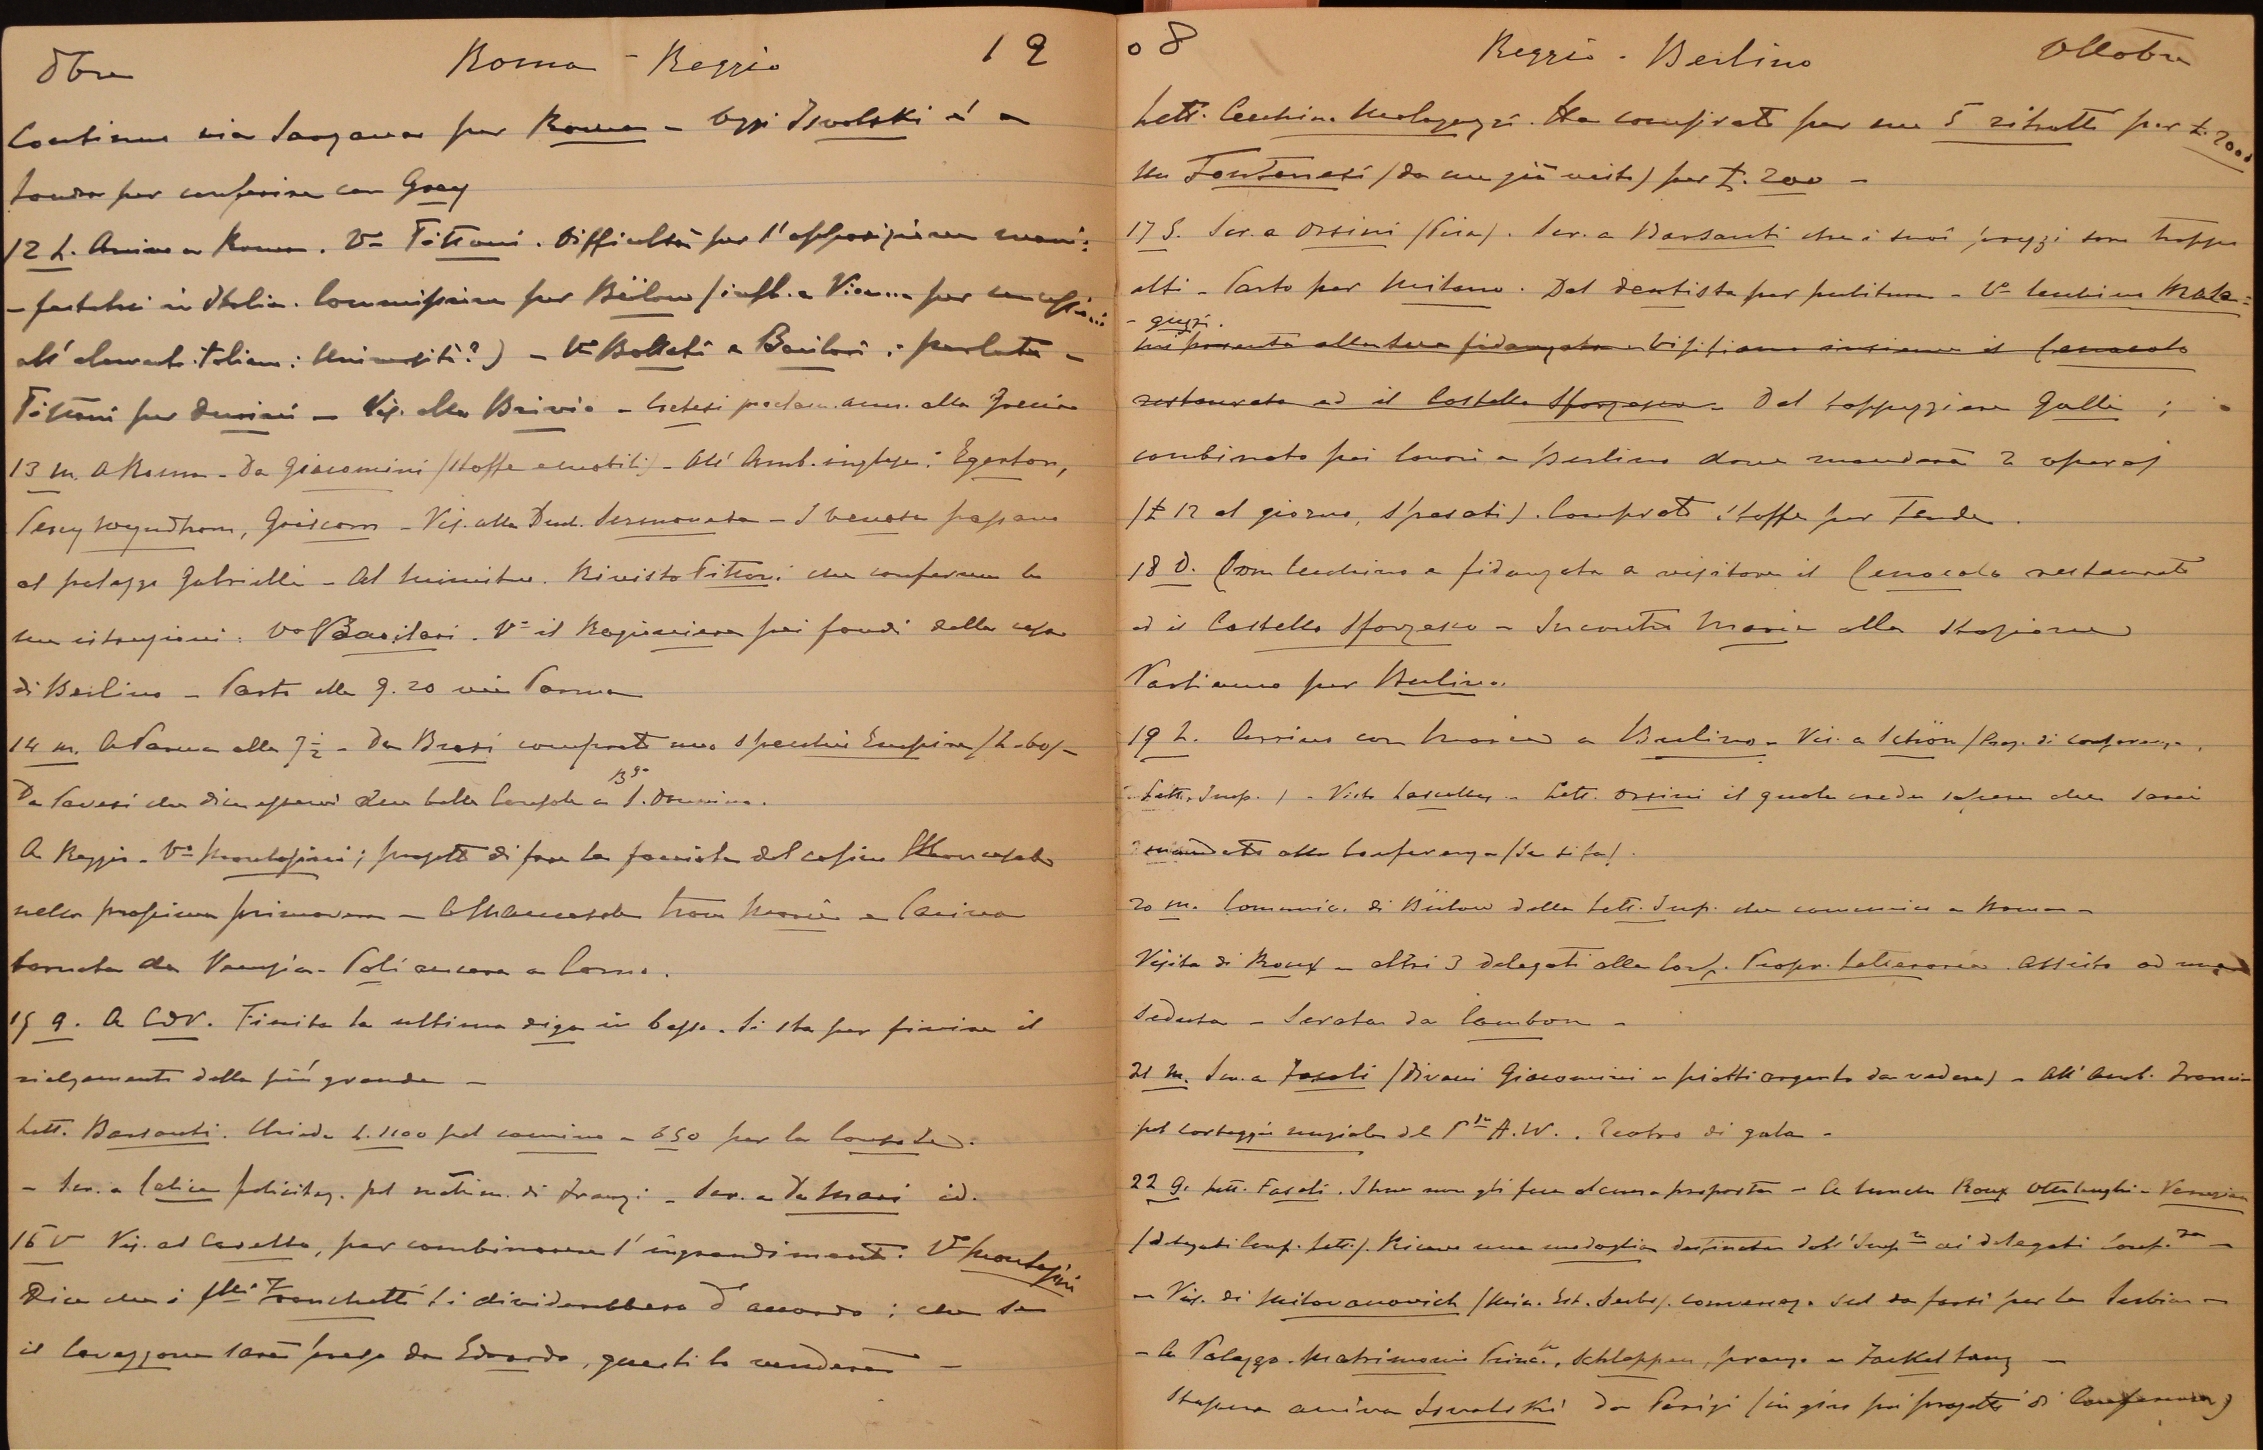 8bre Roma - Reggio 19
Continuo via Sarzana per Roma - Oggi Isvolski è a
Londra per conferire con Grey
12 L. Arrivo a Roma. Vo Tittoni. Difficoltà per l'opposizione mani=
-festatasi in Italia. Commissione per Bülow (infl. a Vienna per concessioni
all'elemento italiano: Università?) - Vo Bollati e Barilari: parlato -
Tittoni per Durini - Vis. alla Brivio - Cretesi proclam. ann. alla Grecia
13 M. A Roma - Da Giacomini (stoffe e mobili) - All'Amb. inglese: Egerton,
Percy Wyndham, Griscom - Vis. alla Duch. Sermoneta - I Venosta passano
al palazzo Gabrielli - Al Ministero. Rivisto Tittoni che conferma le
sue istruzioni: Vo Barilari. Vo il Ragioniere pei fondi della casa
di Berlino - Parto alle 9.20 via Parma
14 M. A Parma alle 7 1/2 - Da Bresi comprato uno specchio Empire (L. 60) -
Da Pavesi che dice esservi due belle Consoles a Bgo S. Donnino.
A Reggio - Vo Montasini; progetto di fare la facciata del casino Mancasale
nella prossima primavera - A Mancasale trovo Maria e Carina
tornata da Venezia - Polì ancora a Como.
15 G. A CDV. Finita la ultima diga in basso. Si sta per finire il
rialzamento della più grande -
Lett. Barsanti. Chiede L. 1100 pel camino e 650 per la Console.
- Scr. a Celica felicitaz. pel matrim. di Franz: - Scr. a De Mari id.
16 V Vis. al Casello, per combinare l'ingrandimento: Vo Montasini
Dice che i flli Franchetti si dividerebbero d'accordo: che se
il Cavazzone sarà preso da Edoardo, questi lo venderà -
08 Reggio - Berlino Ottobre
Lett. Cecchino Malaguzzi. Ha comprato per me 5 ritratti per L. 2000
un Fontanesi (da me già visto) per L. 200 -
17 S. Scr. a Orsini (Pisa). Scr. a Barsanti che i suoi prezzi sono troppo
alti - Parto per Milano. Dal dentista per pulitura - Vo Cecchino Mala=
- guzzi.
mi presenta alla sua fidanzata - Visitiamo insieme il Cenacolo
restaurato ed il Castello Sforzesco - Dal tappezziere Galli;
combinato pei lavori a Berlino dove manderà 2 operaj
(L 12 al giorno, spesati). Comprato stoffe per tende.
18 D. Con Cecchino e fidanzata a visitare il Cenacolo restaurato
ed il Castello Sforzesco - Incontro Maria alla stazione
Partiamo per Berlino.
19 L. Arrivo con Maria a Berlino - Vis. a Schön (Prog. di conferenza,
Lett. Imp.) - Visto Lascelles - Lett. Orsini il quale crede sapere che sarei
mandato alla Conferenza (se si fa).
20 M. Comunic. di Bülow della Lett. Imp. che comunico a Roma -
Visita di Roux e altri 3 delegati alla Conf. Propr. Letteraria. Assisto ad una
seduta - Serata da Cambon -
21 M. Scr. a Fasoli (divani Giacomini e piatti argento da vedere) - All'Amb. Francia
pel corteggio nuziale del P.pe A.W.. Teatro di gala -
22 G. Lett. Fasoli. Stern non gli fece alcuna proposta - A lunch Roux Ottolenghi - Venezian
(delegati Conf. Lett.). Ricevo una medaglia destinata dall'Imp.re ai delegati Conf.za -
- Vis. di Milovanovich (Min. Est. Serbo). conversaz. sul da farsi per la Serbia -
- A Palazzo. Matrimonio Princ.pe, Schleppen, pranzo e Fackeltanz -
Stasera arriva Isvolski da Parigi (in giro pei progetti di Conferenza)